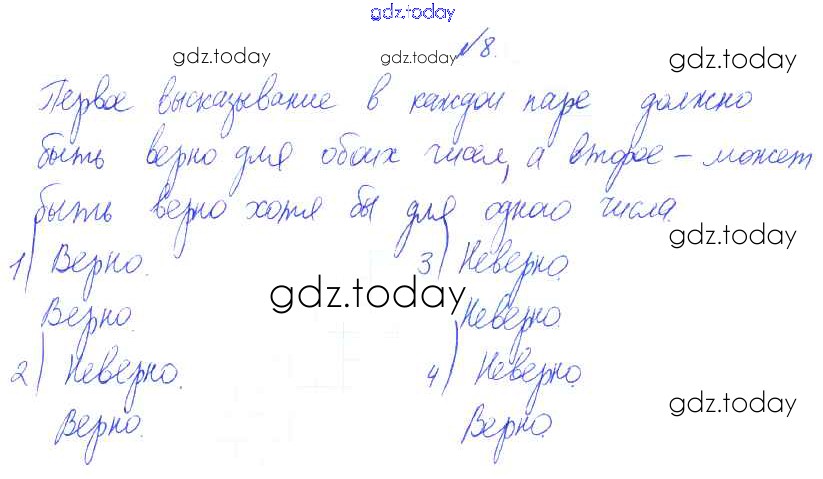 gdz.today
gdz.today gdz.today №8. gdz.today
Первое высказывание в каждой паре должно
быть верно для обоих чисел, а второе – может
быть верно хотя бы для одного числа.
gdz.today
1) Верно.
Верно.
2) Неверно.
Верно.
3) Неверно.
Неверно.
4) Неверно.
Верно.
gdz.today
gdz.today